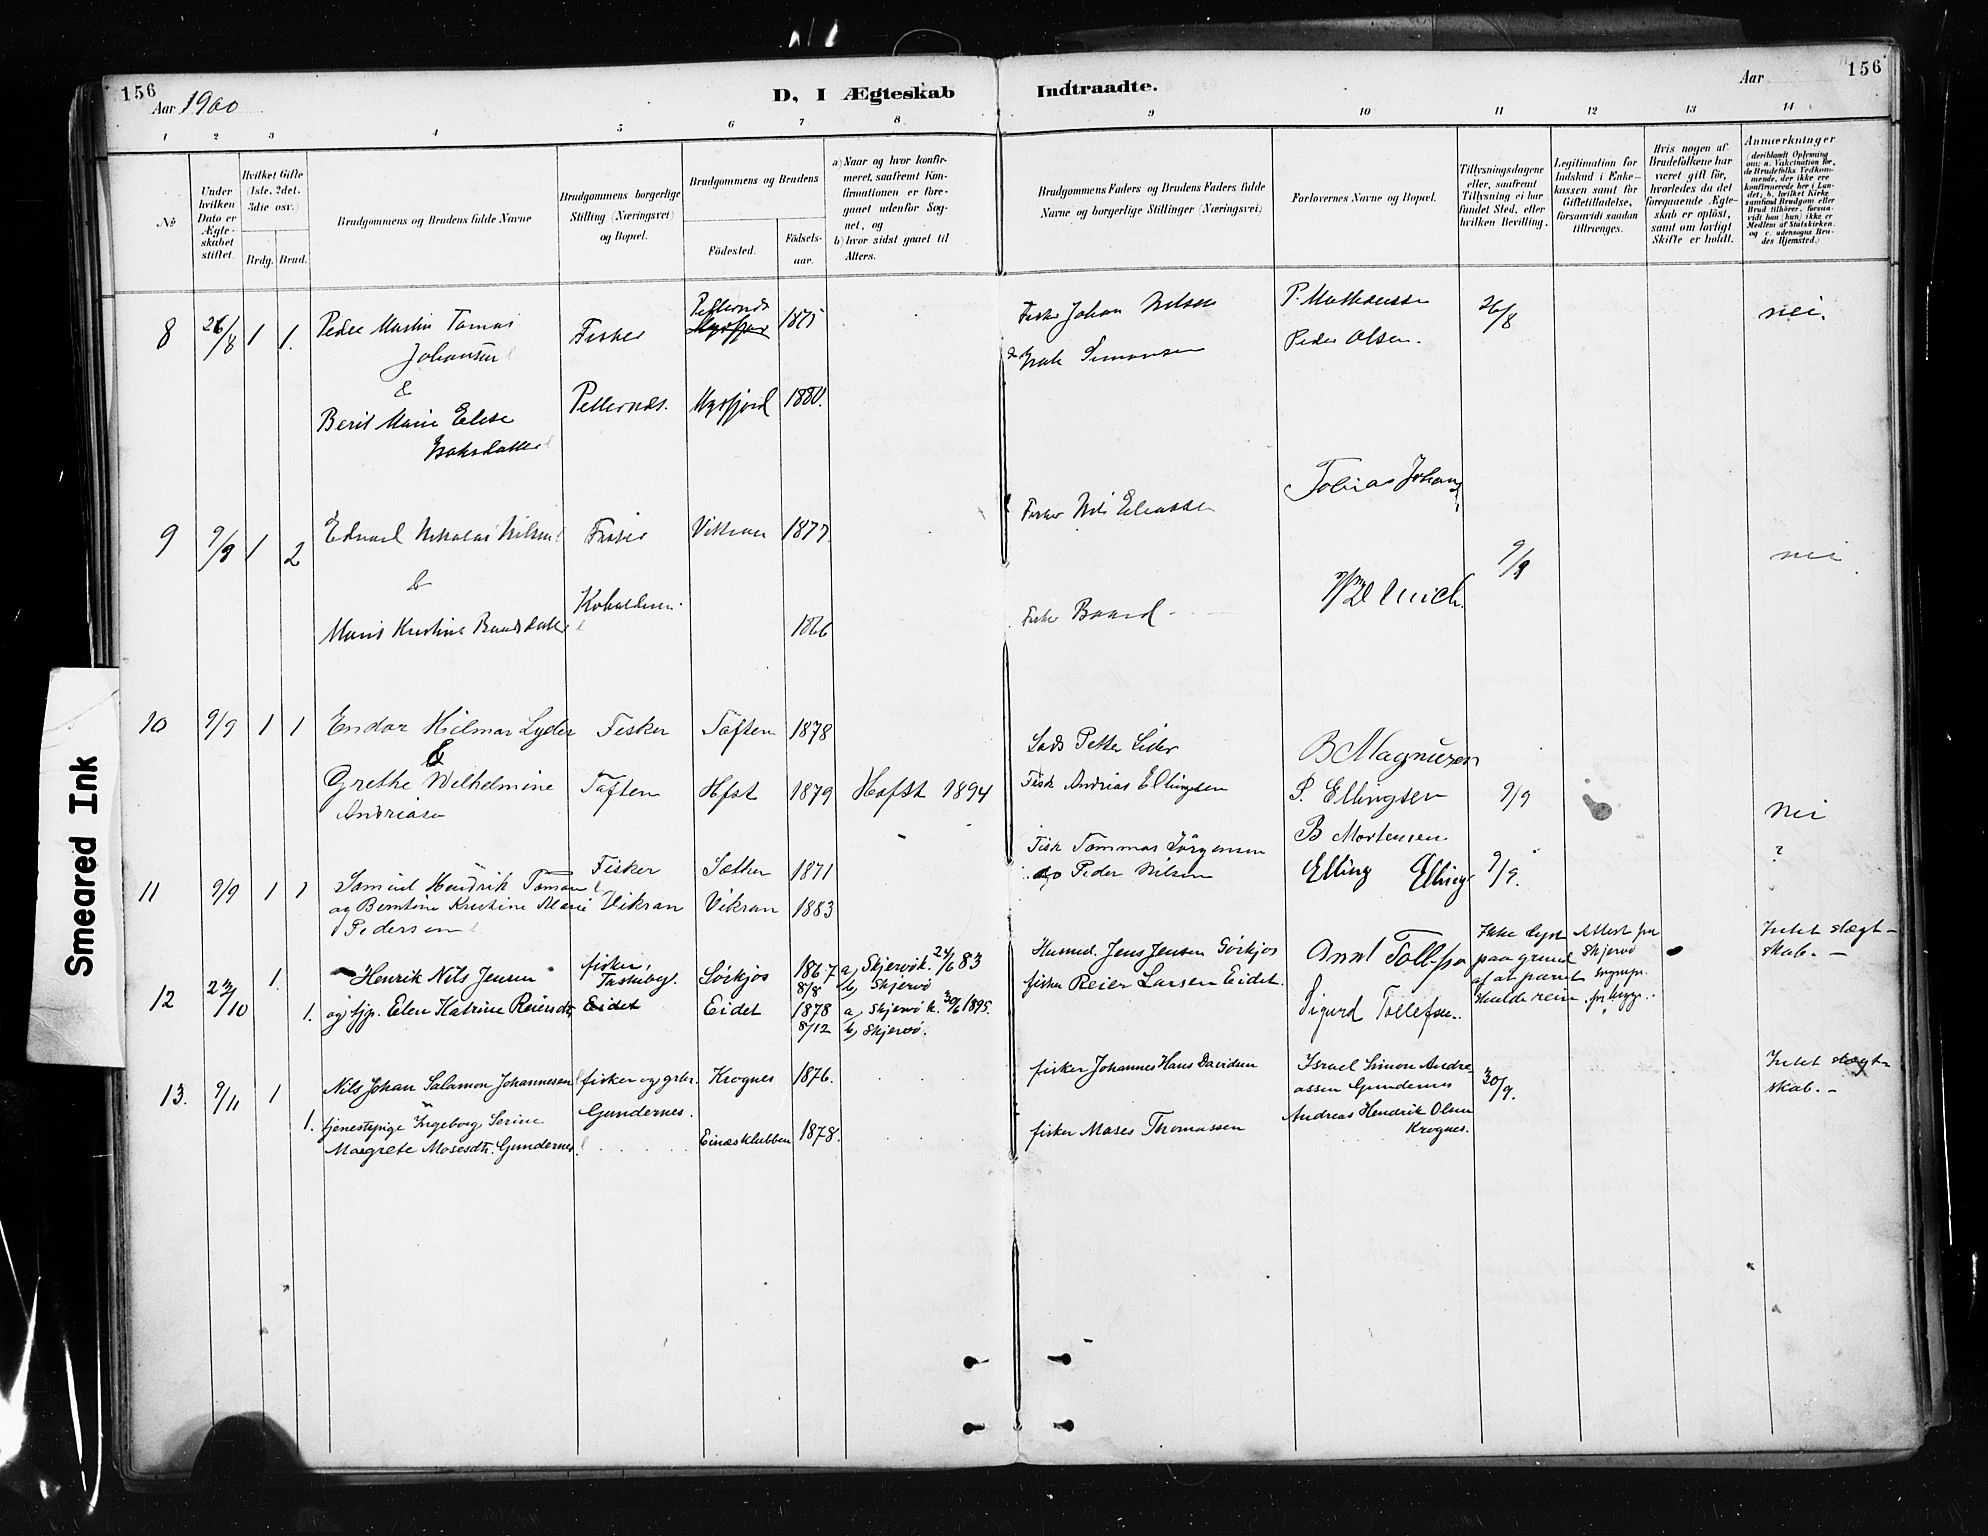 156
Aar 1900
D, I Ægteskab Indtraadte.
Aar
156
1 2 3 4 5 6 7 8 9 10 11 12 13 14
No
Under hvilken Dato er Ægteskabet stiftet.
Hvilket Gifte (1ste, 2det, 3die osv.)
Brdg. Brud.
Brudgommens og Brudens fulde Navne
Brudgommens borgerlige Stilling (Næringsvei) og Bopæl.
Brudgommens og Brudens
Födested.
Födsels-aar.
a) Naar og hvor konfirmeret, saafremt Konfirmationen er foregaaet udenfor Sognet, og
b) hvor sidst gaaet til Alters.
Brudgommens Faders og Brudens Faders fulde Navne og borgerlige Stillinger (Næringsvei)
Forlovernes Navne og Bopæl.
Tillysningsdagene eller, saafremt Tillysning ei har fundet Sted, efter hvilken Bevilling.
Legitimation for Indskud i Enkekassen samt for Giftetilladelse, forsaavidt saadan tiltrænges.
Hvis nogen af Brudefolkene har været gift för, hvorledes da det foregaaende Ægteskab er oplöst, samt om lovligt Skifte er holdt.
Anmærkninger
(deriblandt Oplysning om: a. Vakcination for de Brudefolks Vedkommende, der ikke ere konfirmerede her i Landet; b. hvilket Kirkesamfund Brudgom eller Brud tilhörer, forsaavidt han (hun) ikke er Medlem af Statskirken, og c. udensogns Brudes Hjemsted.)
8 26/8 1 1. Peder Martin Tomas Fisker 1875 Fisker Johan Nilsen 26/8 nei.
Johansen Peder Olsen.
&
Berit Marie Elise Myrfjord 1880.
9 9/9 1 2 Edvard Nikolai Nilsen Fisker 1877 Fisker Nils Eliassen Tobias Johans 9/9 nei
&
Marie Kristine 1866 Fisker Baard
10 9/9 1 1 Endor Hilmar Lyder Fisker Taften 1878 Petter Lider B Magnusen
&
Grethe Wilhelmine Taften Hfst 1879 Hafst 1894 Fisk Andrias Ellingsen P. Ellingsen 9/9 Nei
Andriasen
11 9/9 1 1 Samuel Hendrik Fisker 1871 Fisk Tommas Jörgensen B Mortensen 9/9. ?
og Berntine Kristine Marie Vikran Vikran 1883 do Peder Nilsen Elling Elling
Pedersen
12 23/10 1. Henrik Nils Jensen fisker, Sörkjos 1867 8/8 a, Skjervök. 24/6 83 b, Skjervö Jens Jensen Sörkjos Ikke lyst paa grund af at Attest fra Skjervö Intet slægtskab. —
1. og tjp. Elen Katrine Reiersdt. Eidet Eidet 1878 8/12 a, Skjervö k. 30/6 1895. b, Skjervö. fisker Reier Larsen Eidet. Sigurd Tollefsen.
13. 9/11 1 Nils Johan Salamon Johannesen fisker og grbr. Krognes 1876. fisker Johannes Hans Davidsen Israel Simon Andreassen Gundernes 30/9. Intet slægtskab. —
1. tjenestepige Ingeborg Serine Gundernes. Einæsklubben 1878. fisker Moses Thomassen Andreas Hendrik Olsen Krognes.
Margrete Mosesdtr. Gundernes.
Smeared Ink